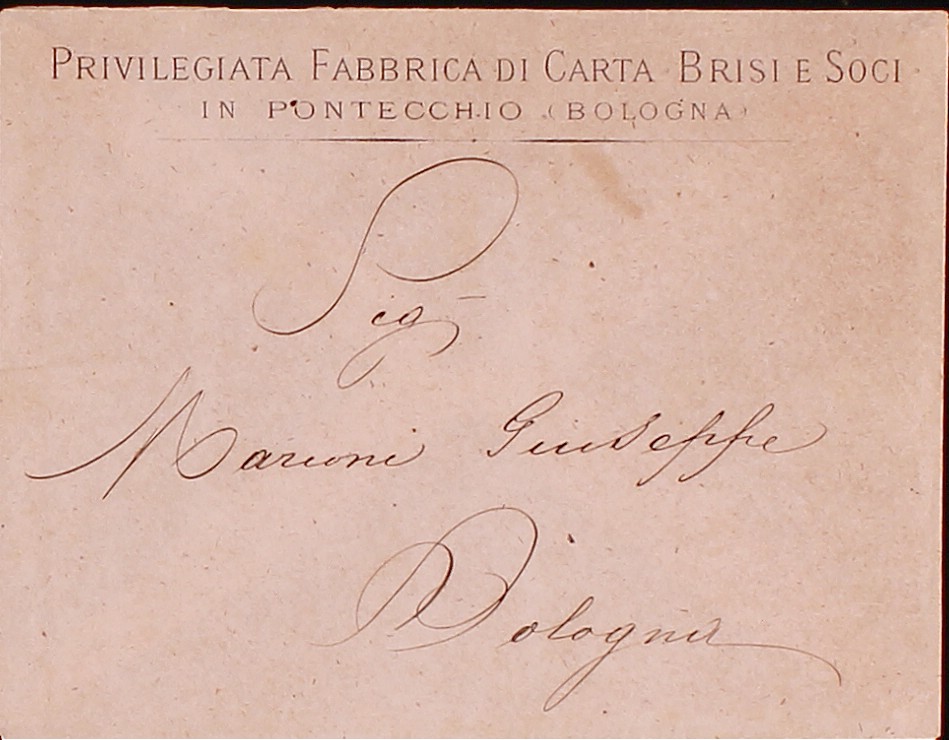 PRIVILEGIATA FABBRICA DI CARTA BRISI E SOCI
IN PONTECCHIO (BOLOGNA)
Sig
Marioni Giuseppe
Bologna